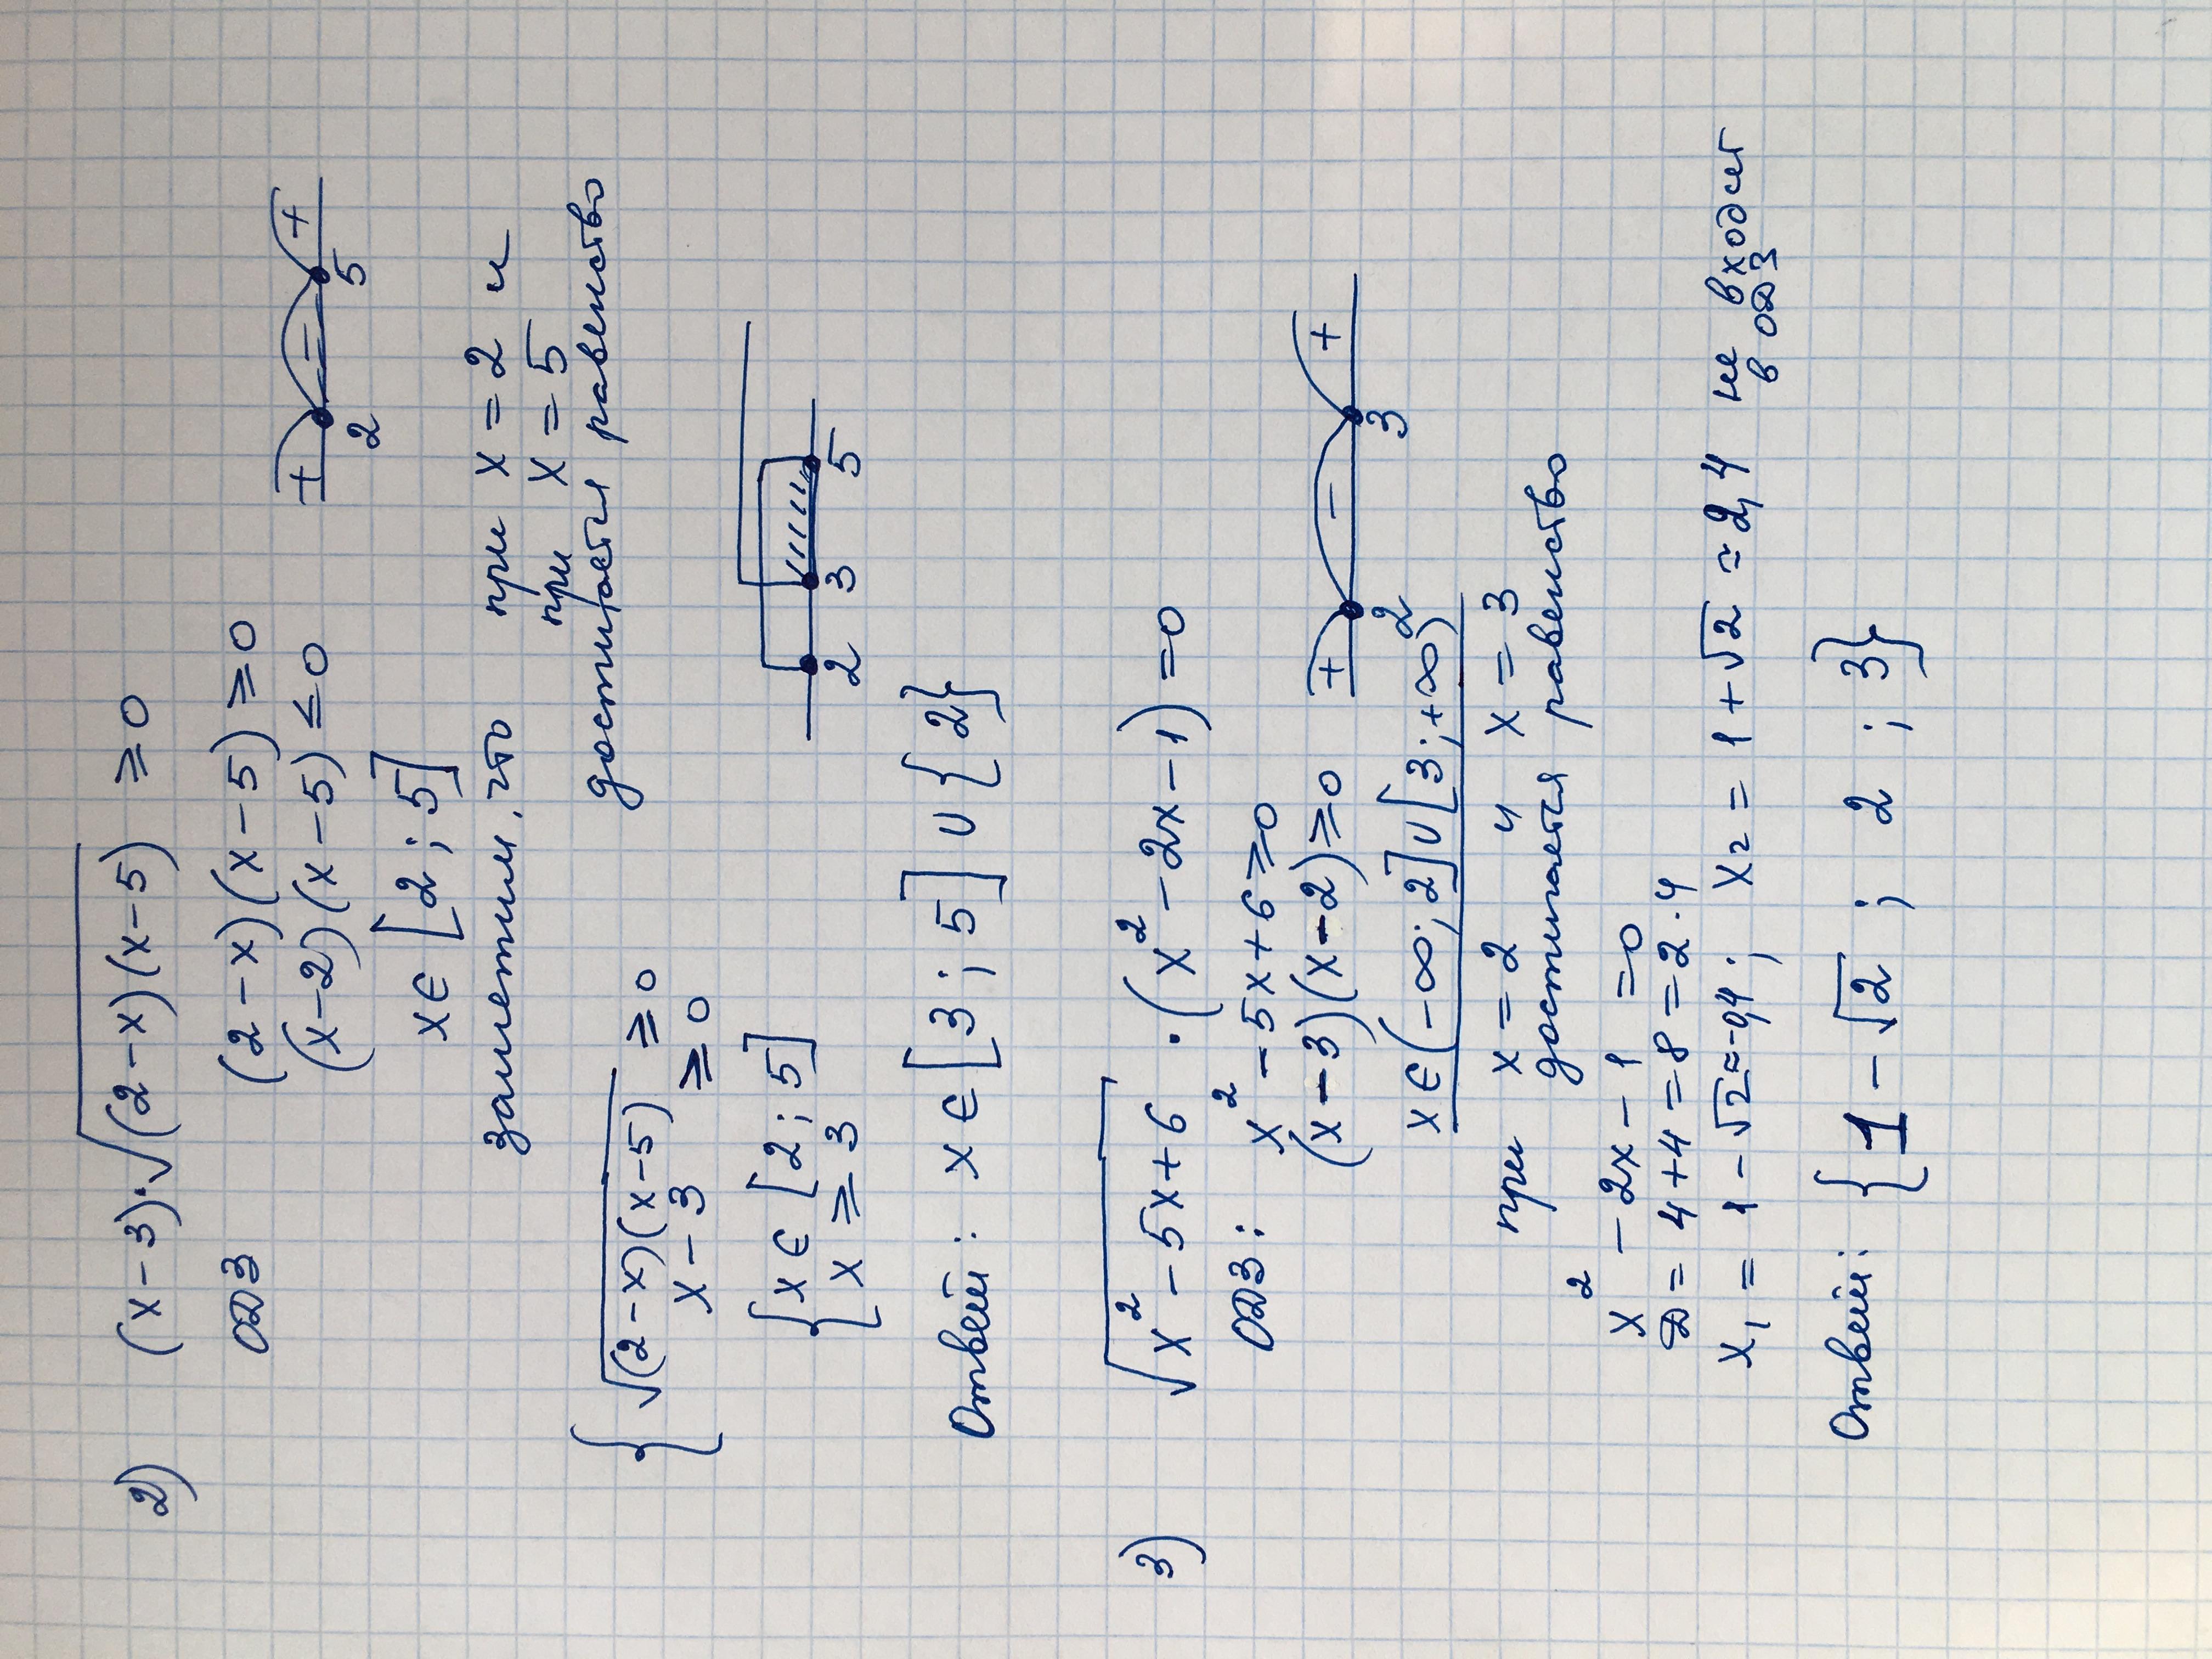 2) (x-3)·√(2-x)(x-5) ≥ 0
ОДЗ (2-x)(x-5) ≥ 0
(x-2)(x-5) ≤ 0
+ − +
2 5
x ∈ [2; 5]
заметим, что при x = 2 и
при x = 5
достигается равенство
{ √(2-x)(x-5) ≥ 0
x - 3 ≥ 0
{ x ∈ [2; 5]
x ≥ 3
2 3 5
Ответ: x ∈ [3; 5] ∪ {2}
3) √x²-5x+6 · (x²-2x-1) = 0
ОДЗ: x²-5x+6 ≥ 0
(x-3)(x-2) ≥ 0
+ − +
2 3
x ∈ (-∞; 2] ∪ [3; +∞)
при x = 2 и x = 3
достигается равенство
x² - 2x - 1 = 0
D = 4+4 = 8 = 2·4
x₁ = 1 - √2 ≈ -0,4; x₂ = 1 + √2 ≈ 2,4 не входит
в ОДЗ
Ответ: {1 - √2; 2; 3}